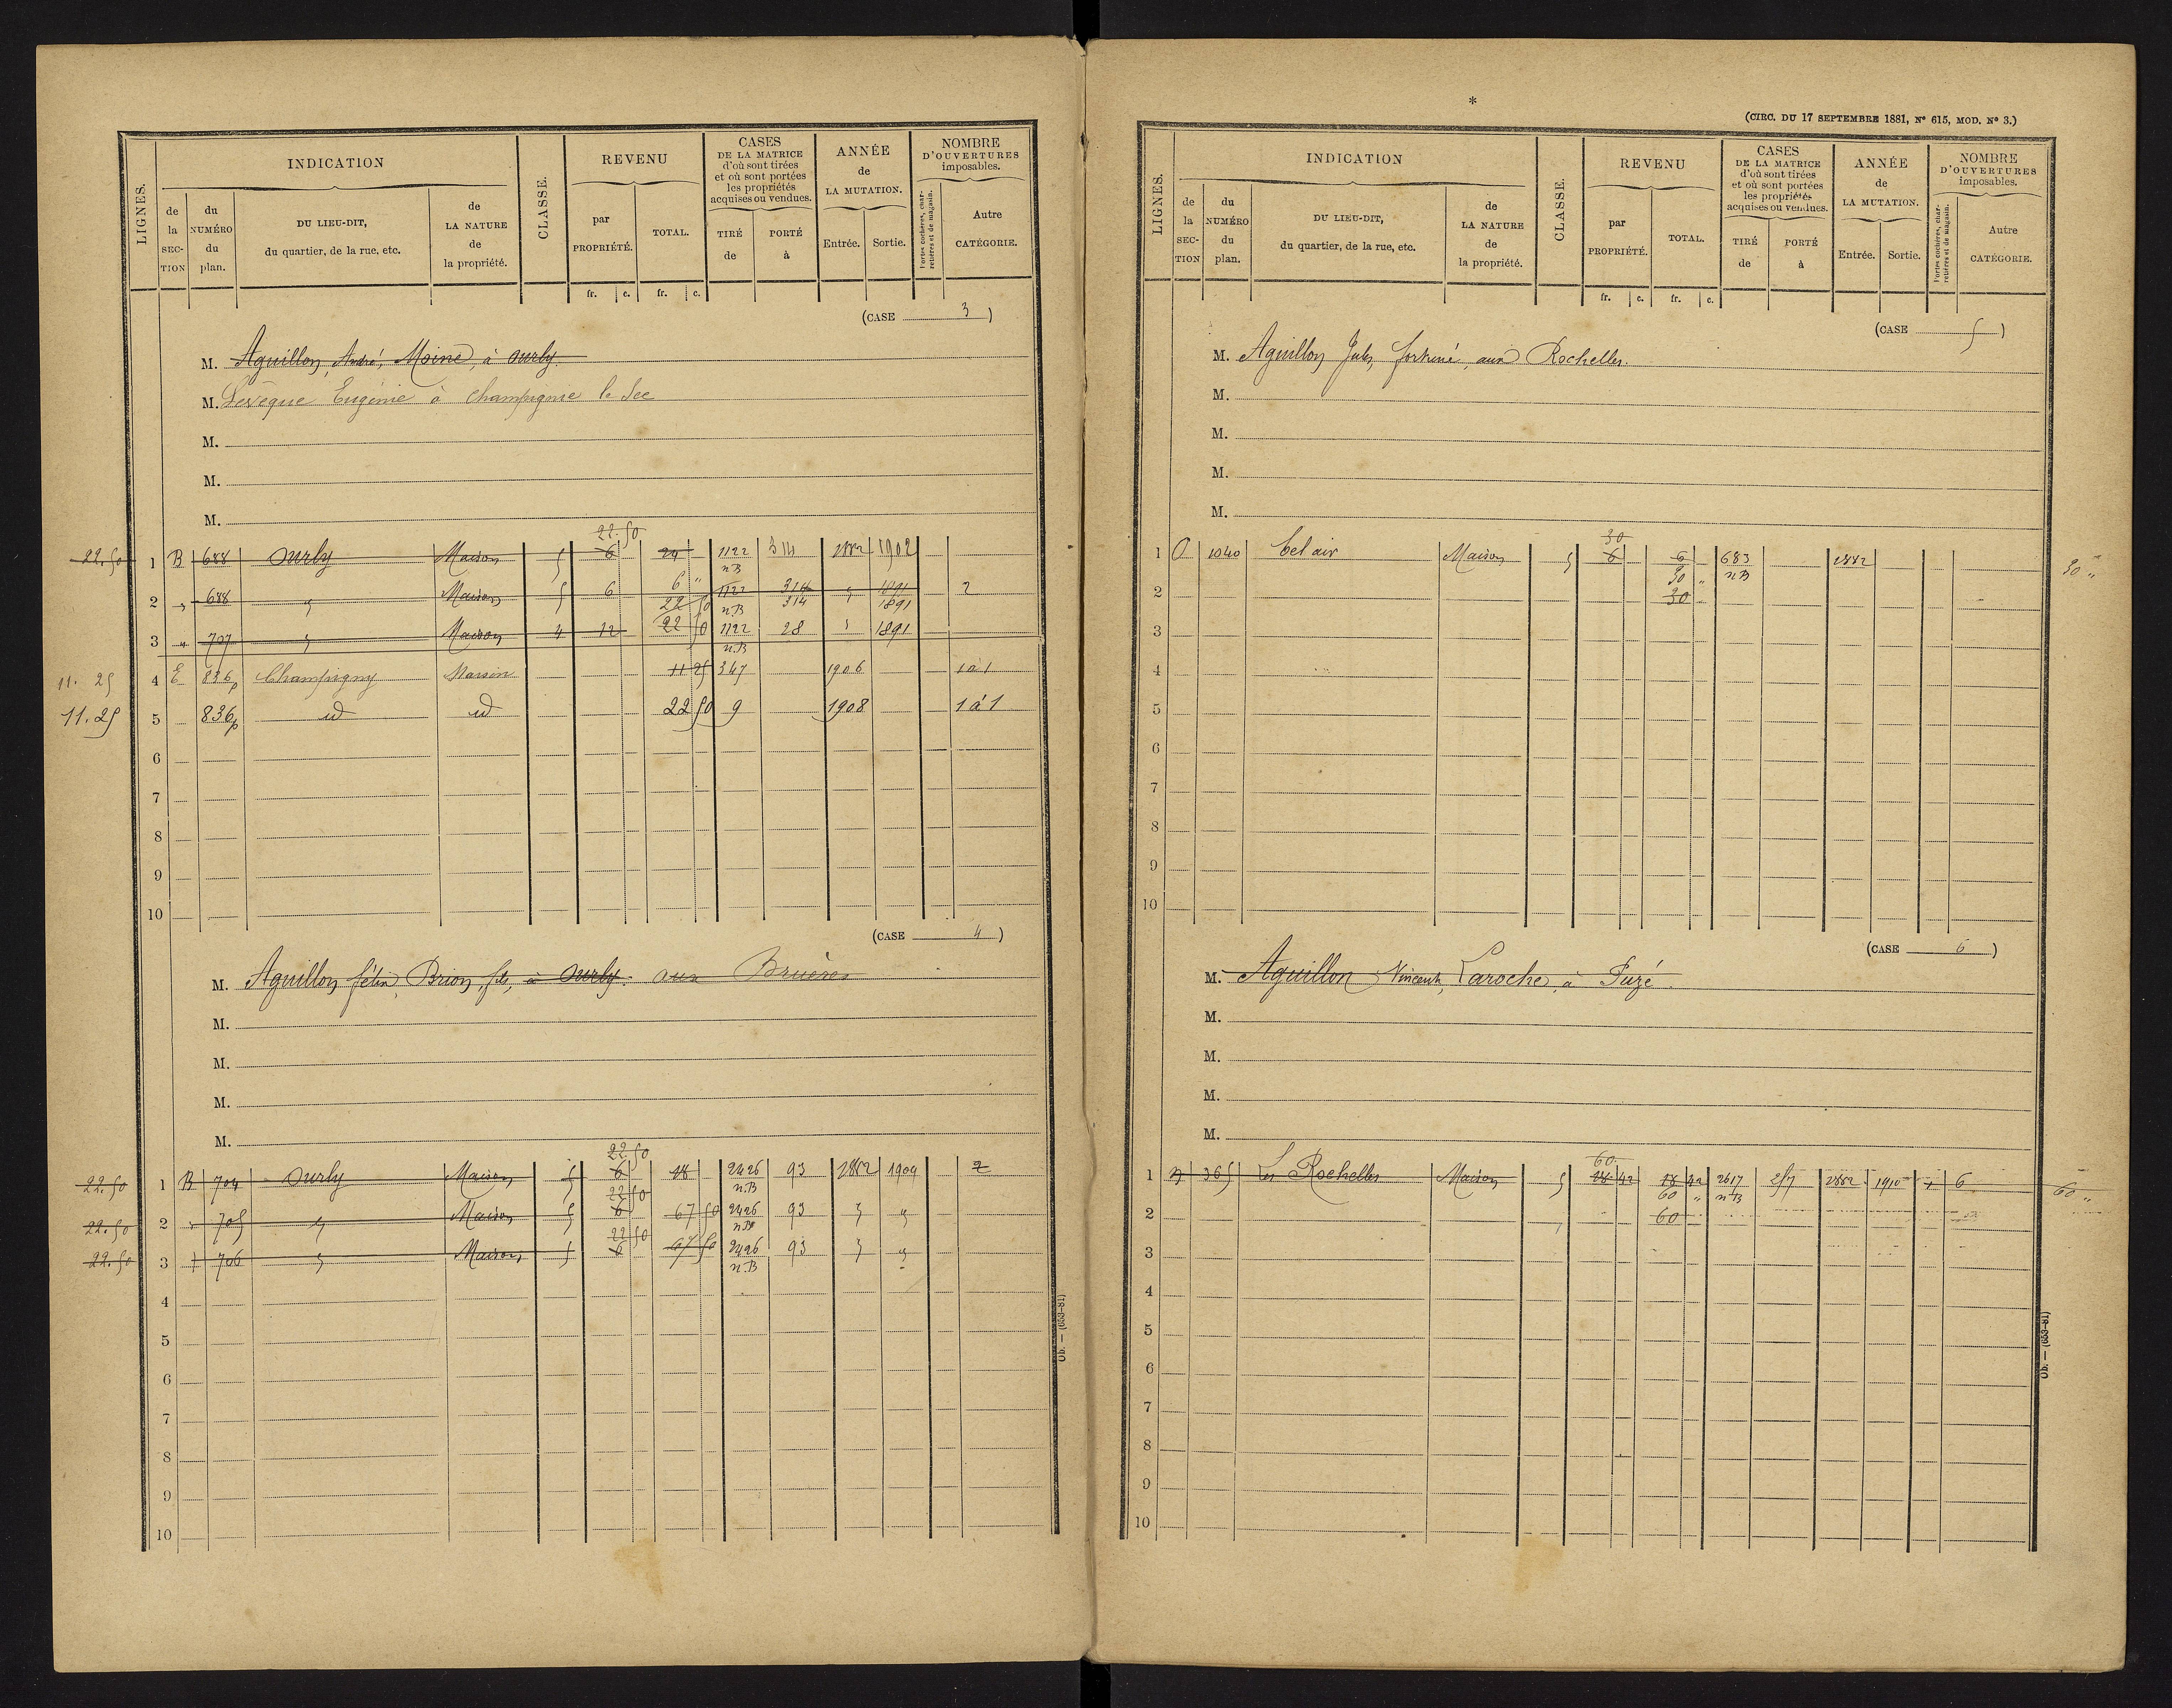 INDICATION
CLASSE.
REVENU
CASES
DE LA MATRICE
d'où sont tirées
et où sont portées
les propriétés
acquises ou vendues.
ANNÉE
de
LA MUTATION.
NOMBRE
D'OUVERTURES
imposables.
LIGNES.
de la SECTION
du NUMÉRO du plan.
DU LIEU-DIT,
du quartier, de la rue, etc.
de LA NATURE de la propriété.
par PROPRIÉTÉ.
TOTAL.
TIRÉ de
PORTÉ à
Entrée.
Sortie.
Portes cochères, charretières et de magasin.
Autre CATÉGORIE.
fr. c. fr. c.
(CASE 3)
M. Aguillon, André, Moine, à Ourly.
M. Levêque Eugénie à Champignie le Sec
M.
M.
M.
22.50
22.50 1 B 688 Ourly Maison 5 6 24 1122 314 1882 1902
n B
6 "
2 " 688 " Maison 5 6 22 50 1122 314 " 1891 2
n B 314 1891
3 " 707 " Maison 4 12 22 50 1122 28 " 1891
n.B
11.25 4 E 836p Champigny Maison 11 25 347 1906 1 à 1
11.25 5 836p id id 22 50 9 1908 1 à 1
6
7
8
9
10
(CASE 4)
M. Aguillon félix, Brion, fils, à Ourly. aux Bruères
M.
M.
M.
M.
22 50
22.50 1 B 704 Ourly Maison 5 6 18 2426 93 1882 1904 2
22 50 n.B
22.50 2 " 705 " Maison 5 6 67 50 2426 93 " "
22 50 n B
22.50 3 " 706 " Maison 5 6 67 50 2426 93 " "
n.B
4
5
6
7
8
9
10
Ob. — (653-81)
*
(CIRC. DU 17 SEPTEMBRE 1881, N° 615, MOD. N° 3.)
INDICATION
CLASSE.
REVENU
CASES
DE LA MATRICE
d'où sont tirées
et où sont portées
les propriétés
acquises ou vendues.
ANNÉE
de
LA MUTATION.
NOMBRE
D'OUVERTURES
imposables.
LIGNES.
de la SECTION
du NUMÉRO du plan.
DU LIEU-DIT,
du quartier, de la rue, etc.
de LA NATURE de la propriété.
par PROPRIÉTÉ.
TOTAL.
TIRÉ de
PORTÉ à
Entrée.
Sortie.
Portes cochères, charretières et de magasin.
Autre CATÉGORIE.
fr. c. fr. c.
(CASE 5)
M. Aguillon Jules, fortuné, aux Rochelles.
M.
M.
M.
M.
30
1 O 1040 bel air Maison 5 6 6 683 1882
30 " n B 30 "
2 30
3
4
5
6
7
8
9
10
(CASE 6)
M. Aguillon Vincent, Laroche, à Fuzé.
M.
M.
M.
M.
60
1 365 Les Rochelles Maison 5 18 42 18 42 2617 257 1882 1910 6
60 " n B 60 "
2 60
3
4
5
6
7
8
9
10
Ob. — (653-81)